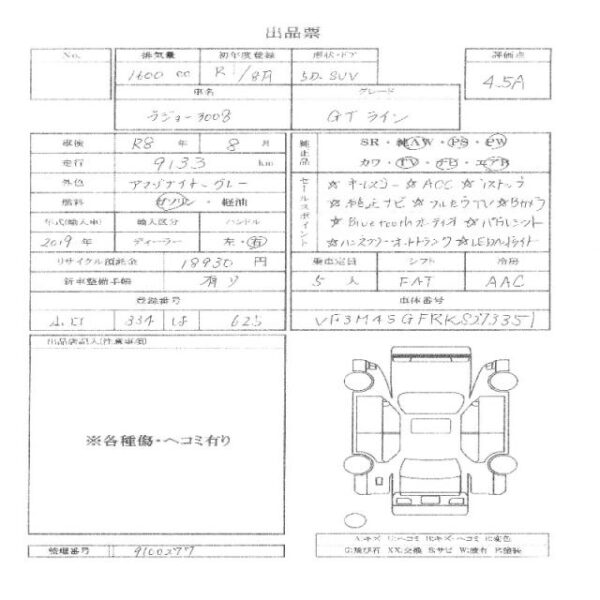 出品票
No. 排気量 初年度登録 形状・ドア 評価点
1600 cc R1/8月 5D SUV 4.5A
車名 グレード
プジョー3008 GTライン
車検 R8 年 8 月
純正品 SR・純AW・PS・PW
走行 9133 km
カワ・TV・ナビ・エアB
外色 アマゾナイト グレー
セールスポイント ☆キーレスゴー ☆ACC ☆iストップ
燃料 ガソリン・軽油
☆純正ナビ ☆フルセグTV ☆Bカメラ
年式(輸入車) 輸入区分 ハンドル
☆Bluetoothオーディオ ☆パドルシフト
2019年 ディーラー 左・右
☆ハンズフリーオートトランク ☆LEDヘッドライト
リサイクル預託金 18930 円
乗車定員 シフト 冷房
新車整備手帳 有り
5 人 FAT AAC
登録番号 車体番号
334 は 625
出品店記入(注意事項)
※各種傷・ヘコミ有り
A:キズ U:ヘコミ B:キズ・ヘコミ C:変色
G:飛び石 XX:交換 S:サビ W:波有 P:塗装
管理番号 9100277